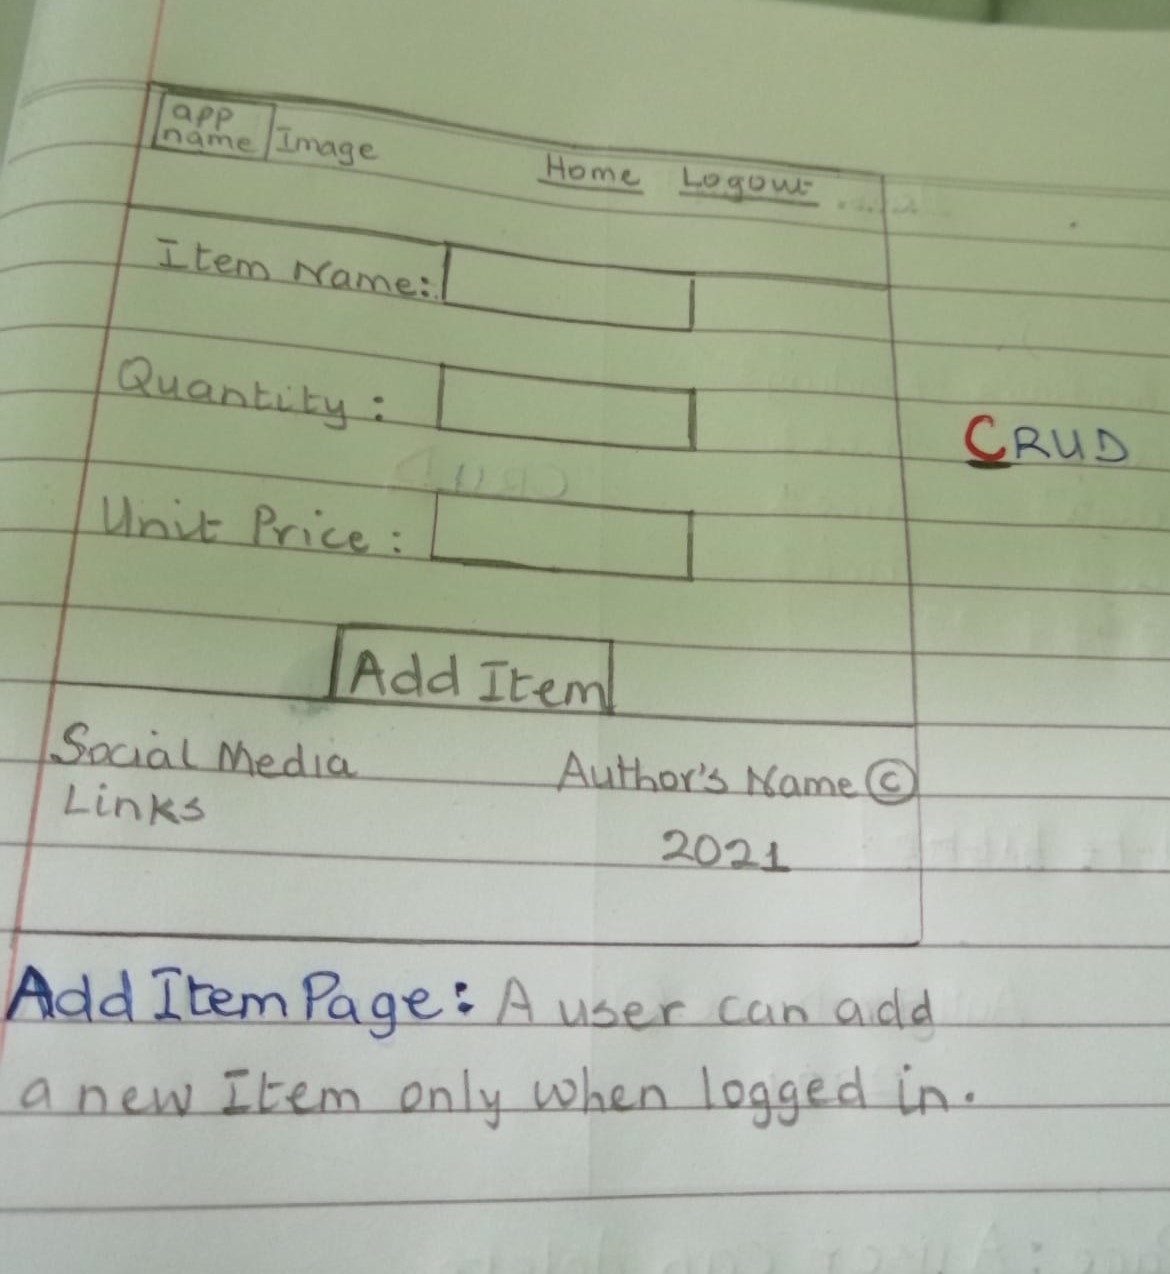 app
name Image
Home Logout
Item Name:
Quantity :
CRUD
Unit Price :
Add Item
Social Media Author's Name ©
Links
2021
Add Item Page: A user can add
a new Item only when logged in.